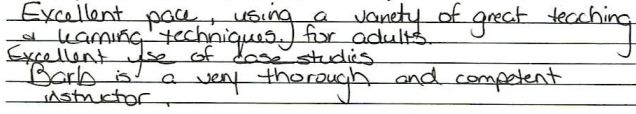 Excellent pace, using a variety of great teaching
& learning techniques. for adults.
Excellent use of case studies
Barb is a very thorough and competent
instructor.